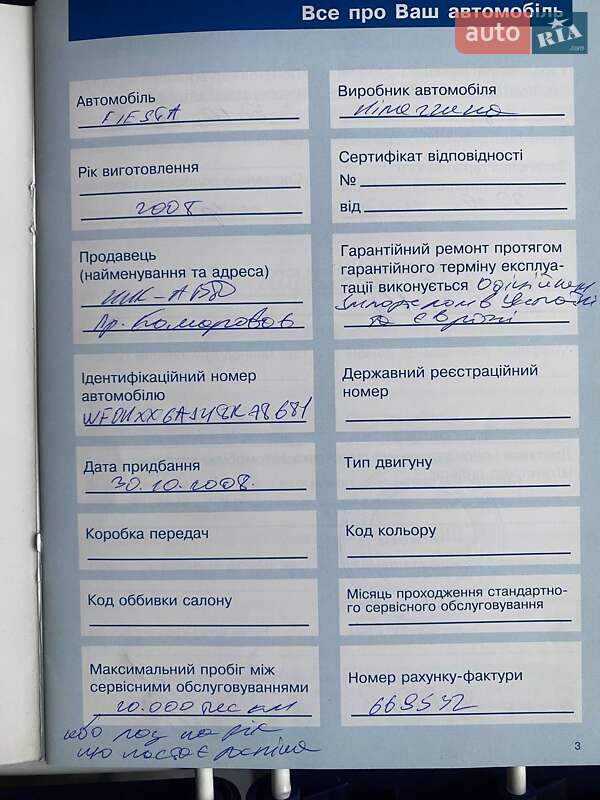 Все про Ваш автомобіль
auto RIA.com
Автомобіль
FIESTA
Виробник автомобіля
Німеччина
Рік виготовлення
2008
Сертифікат відповідності
№
від
Продавець
(найменування та адреса)
НИК-АВТО
Гарантійний ремонт протягом
гарантійного терміну експлуа-
тації виконується Офіційним
імпортером в Україні
та Європі
Ідентифікаційний номер
автомобілю
Державний реєстраційний
номер
Дата придбання
30.10.2008.
Тип двигуну
Коробка передач
Код кольору
Код оббивки салону
Місяць проходження стандартно-
го сервісного обслуговування
Максимальний пробіг між
сервісними обслуговуваннями
20.000 тис км
або раз на рік
що настає раніше
Номер рахунку-фактури
669532
3